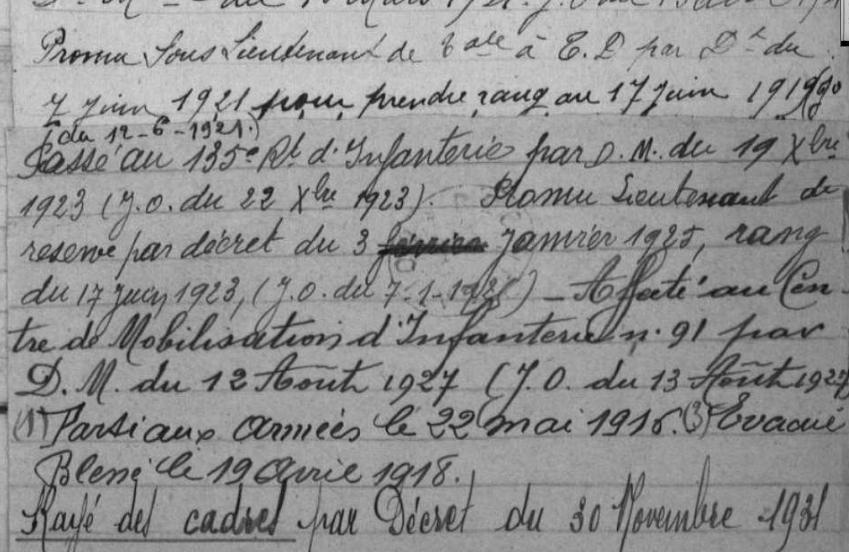 Promu Sous Lieutenant de à E.D par Dt du
7 Juin 1921 pour prendre rang au 17 Juin 1919
(du 12-6-1921.)
Passé au 135e Rt d'Infanterie par D.M. du 19 Xbre
1923 (J.O. du 22 Xbre 1923). Promu Lieutenant de
reserve par décret du 3 Janvier 1925, rang
du 17 Juin 1923, (J.O. du 7-1-1925) - Affecté au Cen-
tre de Mobilisation d'Infanterie n. 91 par
D.M. du 12 Août 1927 (J.O. du 13 Août 1927
(1) Parti aux armées le 22 mai 1916. (3) Evacué
Blessé le 19 Avril 1918.
Rayé des cadres par Décret du 30 Novembre 1931